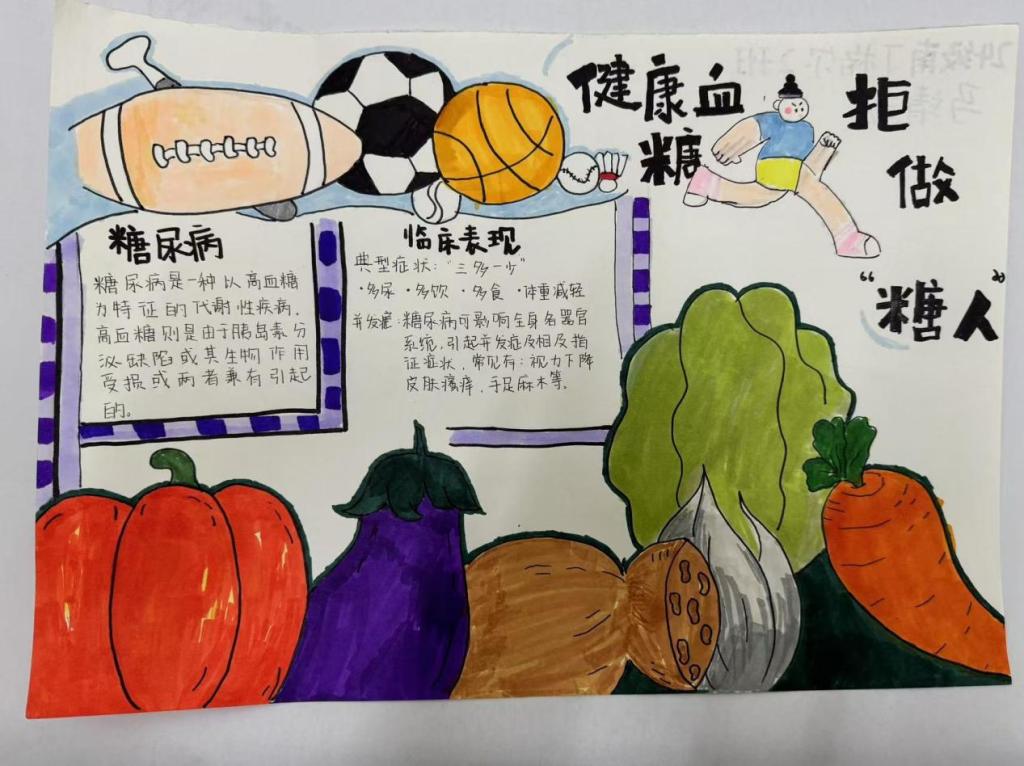 健康血
糖
拒
做
“糖人”
糖尿病
糖尿病是一种以高血糖
为特征的代谢性疾病.
高血糖则是由于胰岛素分
泌缺陷或其生物作用
受损或两者兼有引起
的。
临床表现
典型症状:“三多一少”
·多尿 ·多饮 ·多食 ·体重减轻
并发症:糖尿病可影响全身各器官
系统,引起并发症及相及指
征症状,常见有:视力下降
皮肤瘙痒,手足麻木等。